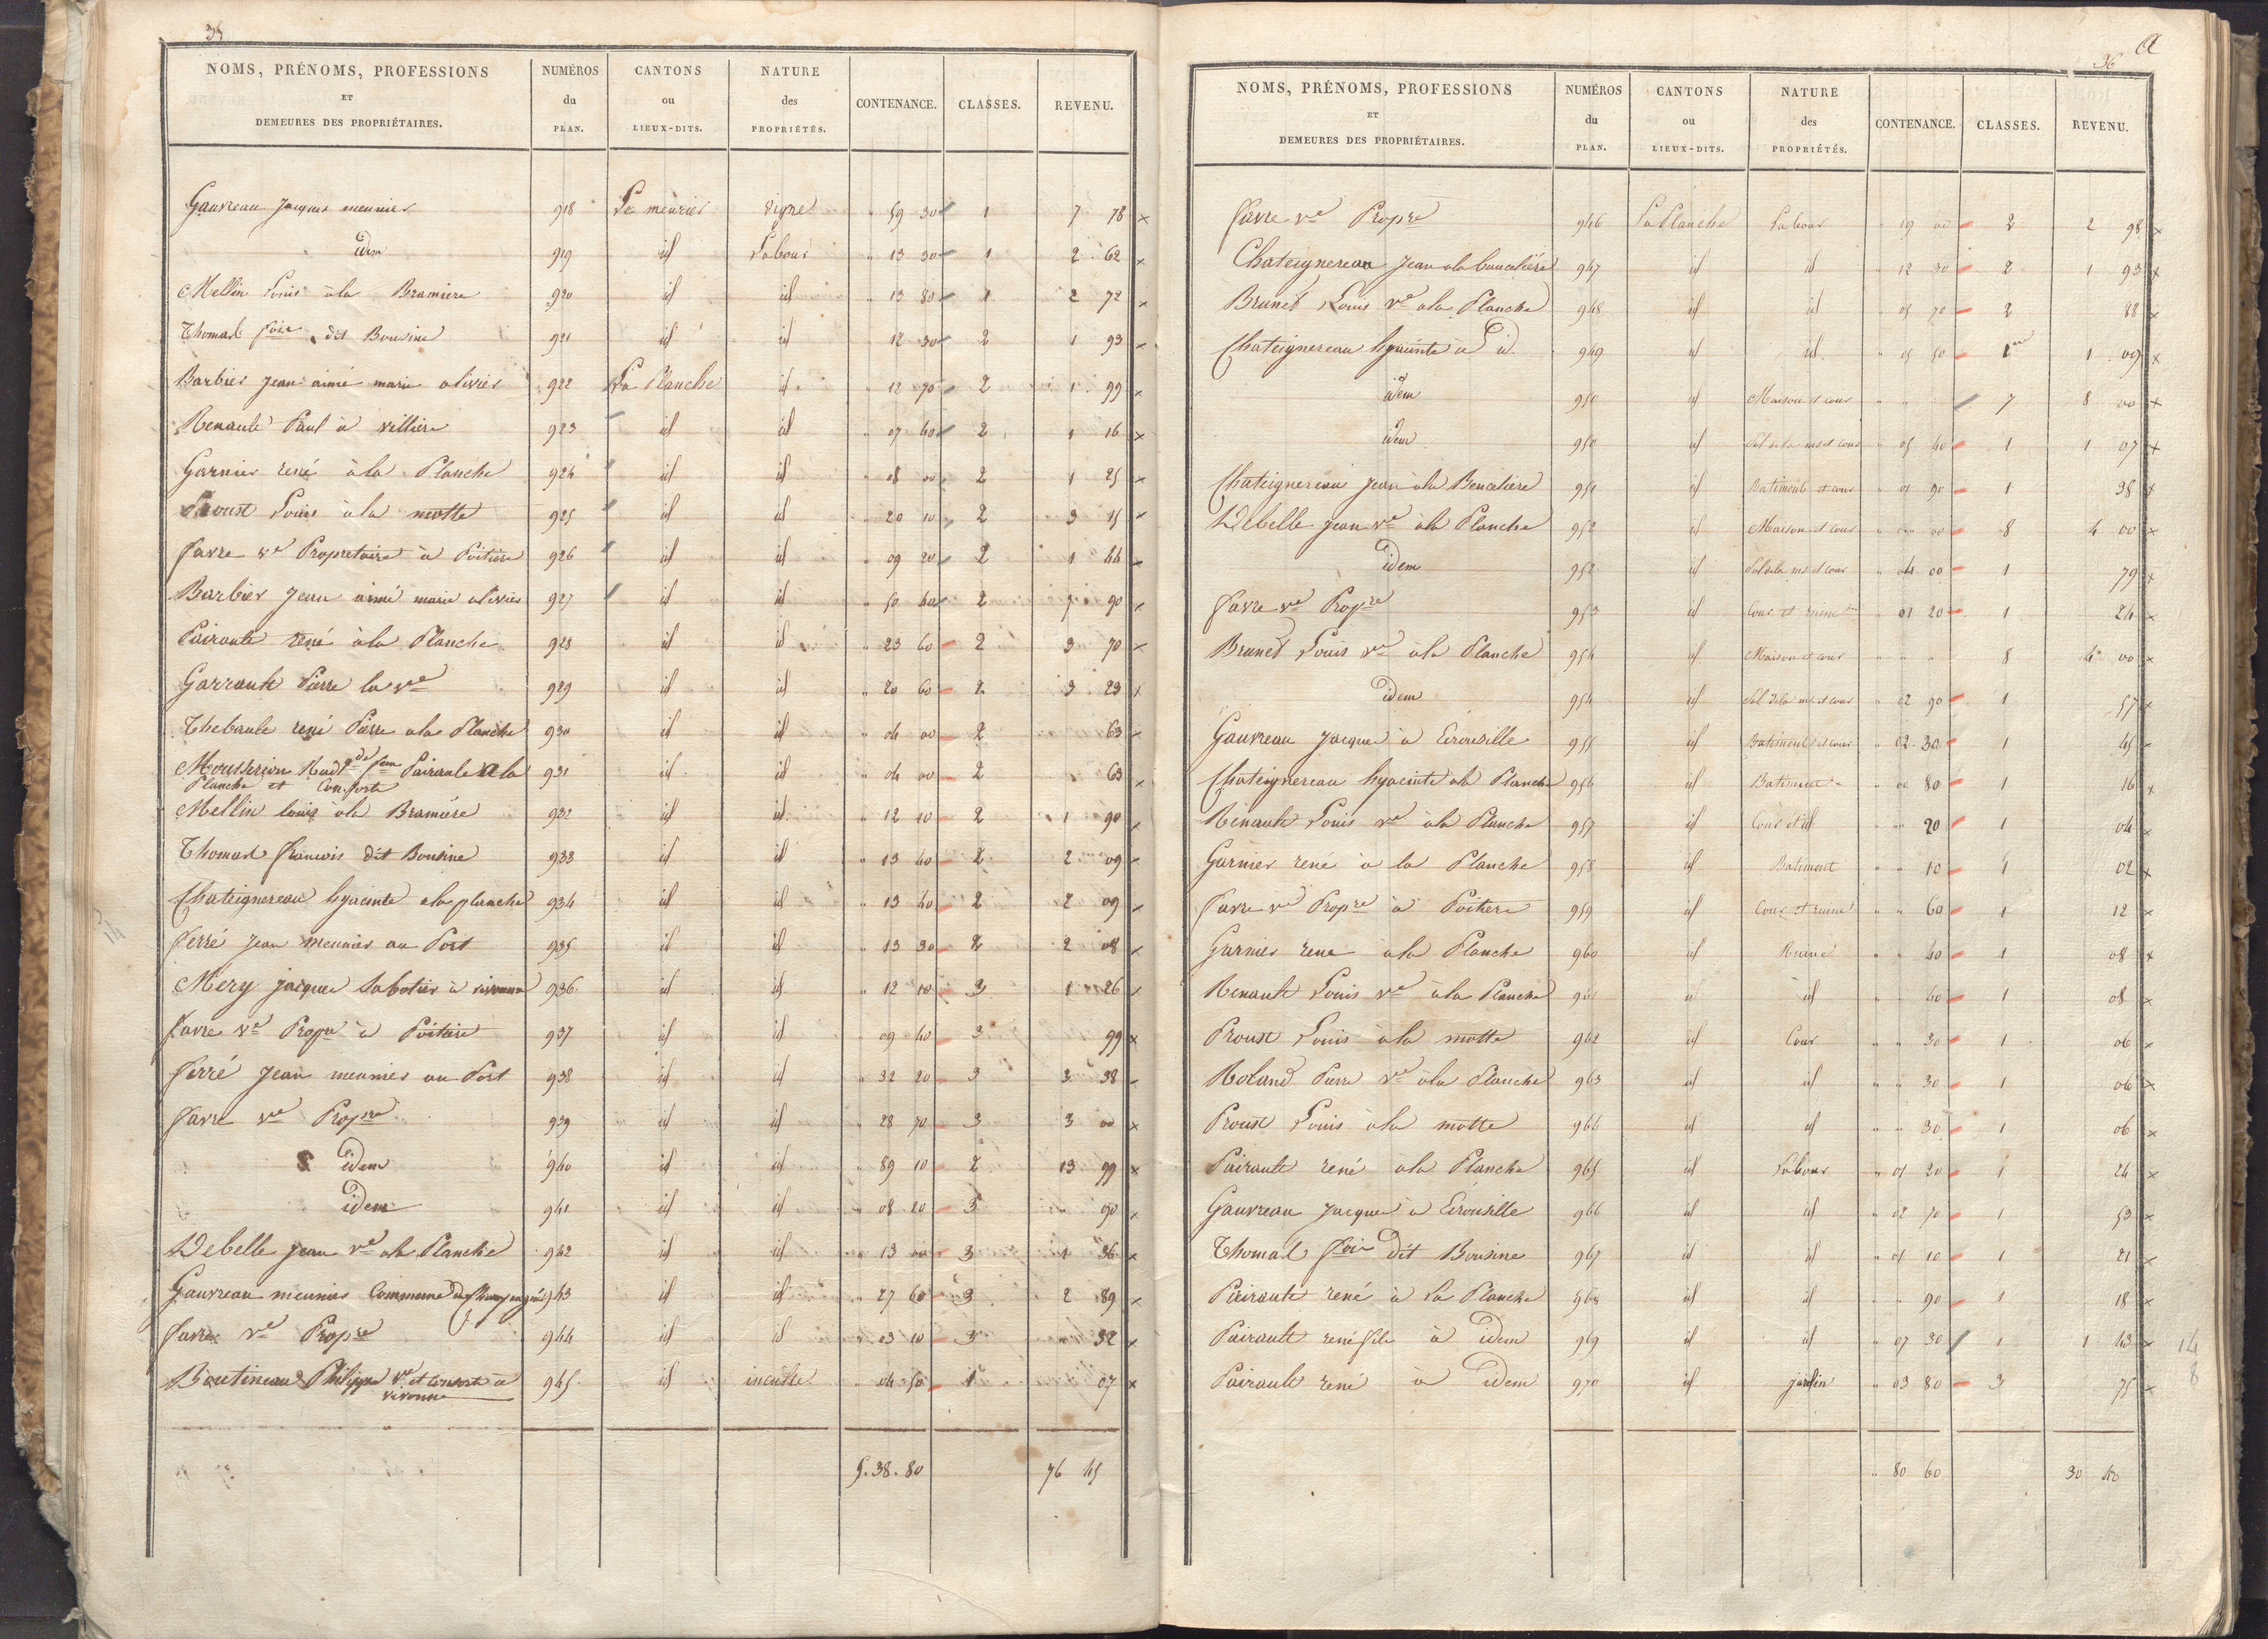 35
NOMS, PRÉNOMS, PROFESSIONS ET DEMEURES DES PROPRIÉTAIRES. NUMÉROS du PLAN. CANTONS ou LIEUX-DITS. NATURE des PROPRIÉTÉS. CONTENANCE. CLASSES. REVENU.
Gauvreau Jacques meunier 918 Le meurier vigne " 59 30 1 7 78 x
idem 919 id Labour " 13 30 1 2 62 x
Mellin Louis à la Bramiere 920 id id " 13 80 1 2 72 x
Thomas fois dit Bousine 921 id id " 12 30 2 1 93 x
Barbier Jean aimé marie olivier 922 La Planche id " 12 70 2 1 99 x
Renault Paul à villiere 923 id id " 07 40 2 1 16 x
Garnier rené à la Planche 924 id id " 08 00 2 1 25 x
Proust Louis à la motte 925 id id " 20 10 2 3 15 x
favre ve Propretaire à Poitiere 926 id id " 09 20 2 1 44 x
Barbier Jean aimé marie olivier 927 id id " 50 40 2 7 90 x
Pairault rené à la Planche 928 id id " 23 60 2 3 70 x
Garrault Pierre la ve 929 id id " 20 60 2 3 23 x
Thebault rené Pierre a la Planche 930 id id " 04 00 2 63 x
fem Pairault a la 931 id id " 04 00 2 63 x
Planche et Consorte
Mellin louis à la Bramiére 932 id id " 12 10 2 1 90 x
Thomas francois dit Bousine 933 id id " 13 40 2 2 09 x
Chateignereau hyacinte a la planche 934 id id " 13 40 2 2 09 x
ferré Jean meunier au Port 935 id id " 13 30 2 2 08 x
Mery jacques Sabotier à vivonne 936 id id " 12 10 3 1 26 x
favre ve Propre à Poitiere 937 id id " 09 40 3 99 x
ferré Jean meunier au Port 938 id id " 32 20 3 3 38 x
favre ve Propre 939 id id " 28 70 3 3 00 x
idem 940 id id " 89 10 2 13 99 x
idem 941 id id " 08 20 3 90 x
Debelle Jean ve a la Planche 942 id id " 13 00 3 1 36 x
Gauvreau meunier Commune de Champagné 943 id id " 27 60 3 2 89 x
favre ve Propre 944 id id " 03 10 3 32 x
Boutineau Philippe ve et Consorte à 945 id inculte " 04 50 1 07 x
vivonne
5. 38. 80 76 45
a
36
NOMS, PRÉNOMS, PROFESSIONS ET DEMEURES DES PROPRIÉTAIRES. NUMÉROS du PLAN. CANTONS ou LIEUX-DITS. NATURE des PROPRIÉTÉS. CONTENANCE. CLASSES. REVENU.
favre ve Propre 946 La Planche Labour " 19 00 2 2 98 x
Chateignereau Jean a la 947 id id " 12 30 2 1 93 x
Brunet Louis ve a la Planche 948 id id " 05 70 2 88 x
Chateignereau hyacinte à id 949 id id " 05 50 1 1 09 x
idem 950 id Maison et cour " " " 7 8 00 x
idem 950 id Sol de la mson et cour " 05 40 1 1 07 x
Chateignereau Jean à la 951 id Batiment et cour " 01 90 1 38 x
Debelle Jean ve à la Planche 952 id Maison et cour " 00 00 8 4 00 x
idem 952 id Sol de la ms et cour " 04 00 1 79 x
favre ve Propre 953 id Cour et ruine " 01 20 1 24 x
Brunet Louis ve à la Planche 954 id Maison et cour " " " 8 4 00 x
idem 954 id Sol de la ms et cour " 02 90 1 57 x
Gauvreau Jacques à 955 id Batiment et cour " 02 30 1 45 x
Chateignereau hyacinte a la Planche 956 id Batiment " 00 80 1 16 x
Renault Louis ve à la Planche 957 id Cour et id " " 20 1 04 x
Garnier rené à la Planche 958 id Batiment " " 10 1 02 x
favre ve Propre à Poitiere 959 id Cour et ruine " " 60 1 12 x
Garnier rene à la Planche 960 id Ruine " " 40 1 08 x
Renault Louis ve à la Planche 961 id id " " 40 1 08 x
Proust Louis à la motte 962 id Cour " " 30 1 06 x
Roland Pierre ve à la Planche 963 id id " " 30 1 06 x
Proust Louis à la motte 964 id id " " 30 1 06 x
Pairault rené à la Planche 965 id Labour " 01 20 1 24 x
Gauvreau Jacques à 966 id id " 02 70 1 53 x
Thomas fois dit Bousine 967 id id " 01 10 1 21 x
Pairault rené à La Planche 968 id id " " 90 1 18 x
Pairault rené fils à idem 969 id id " 07 30 1 1 43 x
Pairault rené à idem 970 id jardin " 03 80 3 75 x
" 80 60 30 40